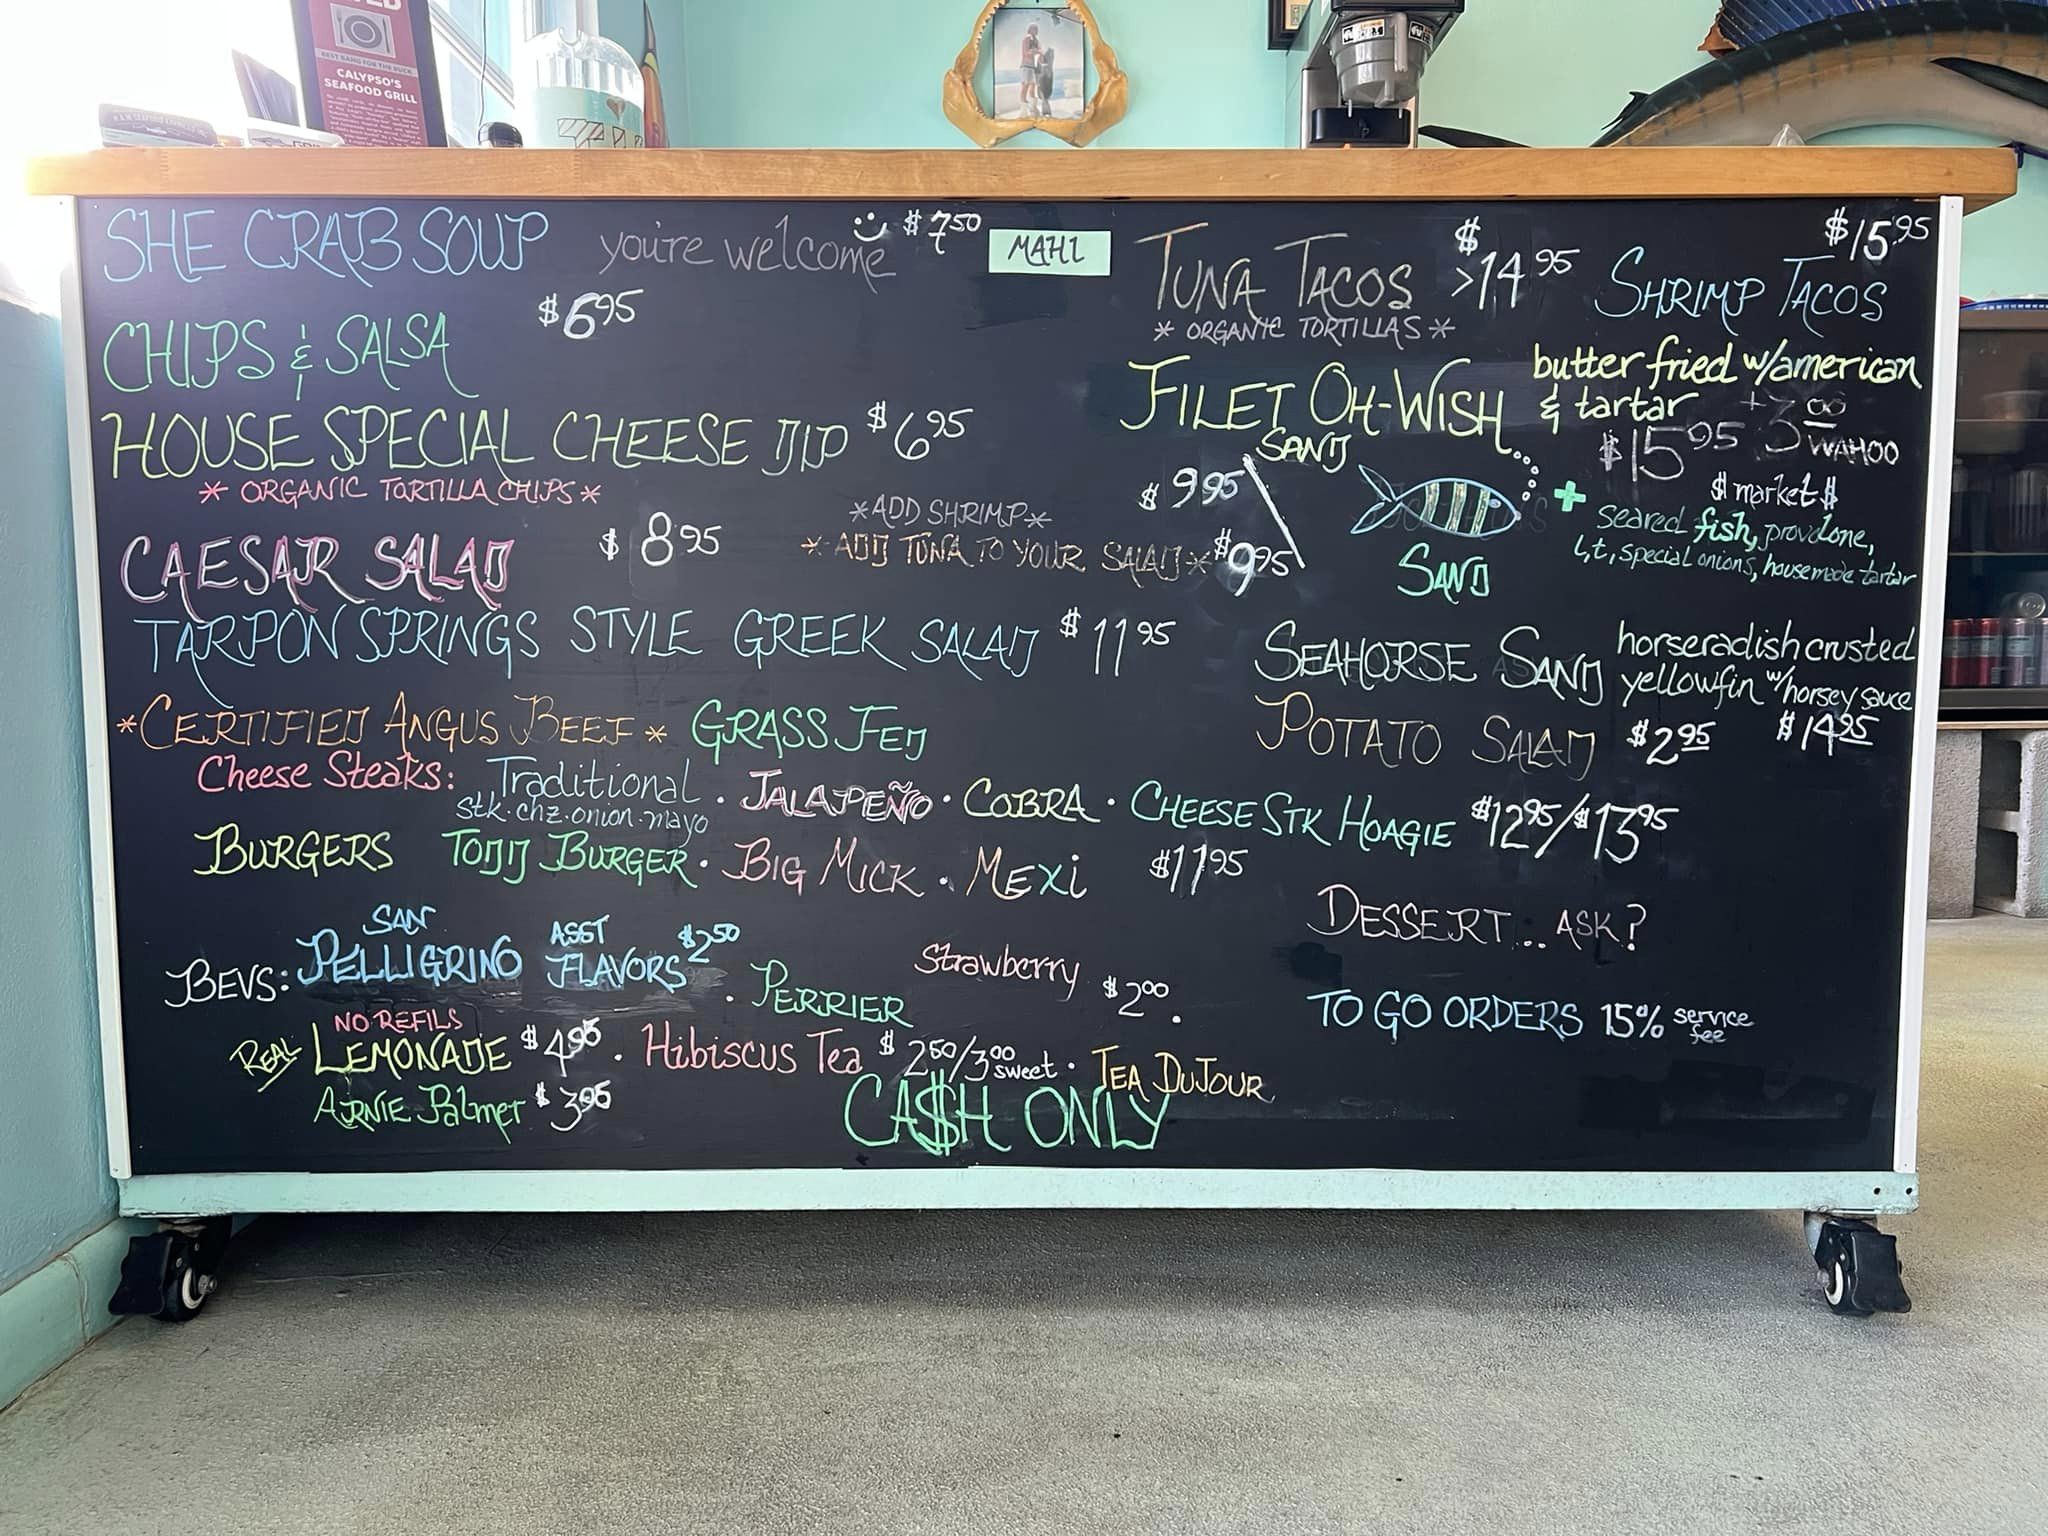 BEST BANG FOR THE BUCK
CALYPSO'S
SEAFOOD GRILL
SHE CRAB SOUP you're welcome $7.50
CHIPS & SALSA $6.95
HOUSE SPECIAL CHEESE DIP $6.95
* ORGANIC TORTILLA CHIPS *
CAESAR SALAD $8.95
*ADD SHRIMP* $9.95
*ADD TUNA TO YOUR SALAD* $9.95
TARPON SPRINGS STYLE GREEK SALAD $11.95
*CERTIFIED ANGUS BEEF* GRASS FED
Cheese Steaks: Traditional · JALAPEÑO · COBRA · CHEESE STK HOAGIE $12.95/$13.95
stk·chz·onion·mayo
BURGERS TODD BURGER · BIG MICK · MEXi $11.95
BEVS: SAN PELLIGRINO ASST FLAVORS $2.50 · PERRIER Strawberry $2.00 ·
NO REFILS
REAL LEMONADE $4.95 · Hibiscus Tea $2.50/3.00 sweet · TEA DUJOUR
ARNIE Palmer $3.95
CA$H ONLY
MAHI
TUNA TACOS $14.95
* ORGANIC TORTILLAS *
SHRIMP TACOS $15.95
FILET OH-WISH SAND
butter fried w/american
& tartar
$15.95 +3.00 WAHOO
SAND + $ market $
seared fish, provolone,
l, t, special onions, housemade tartar
SEAHORSE SAND horseradish crusted
yellowfin w/horsey sauce
$14.95
POTATO SALAD $2.95
DESSERT... ASK?
TO GO ORDERS 15% service fee